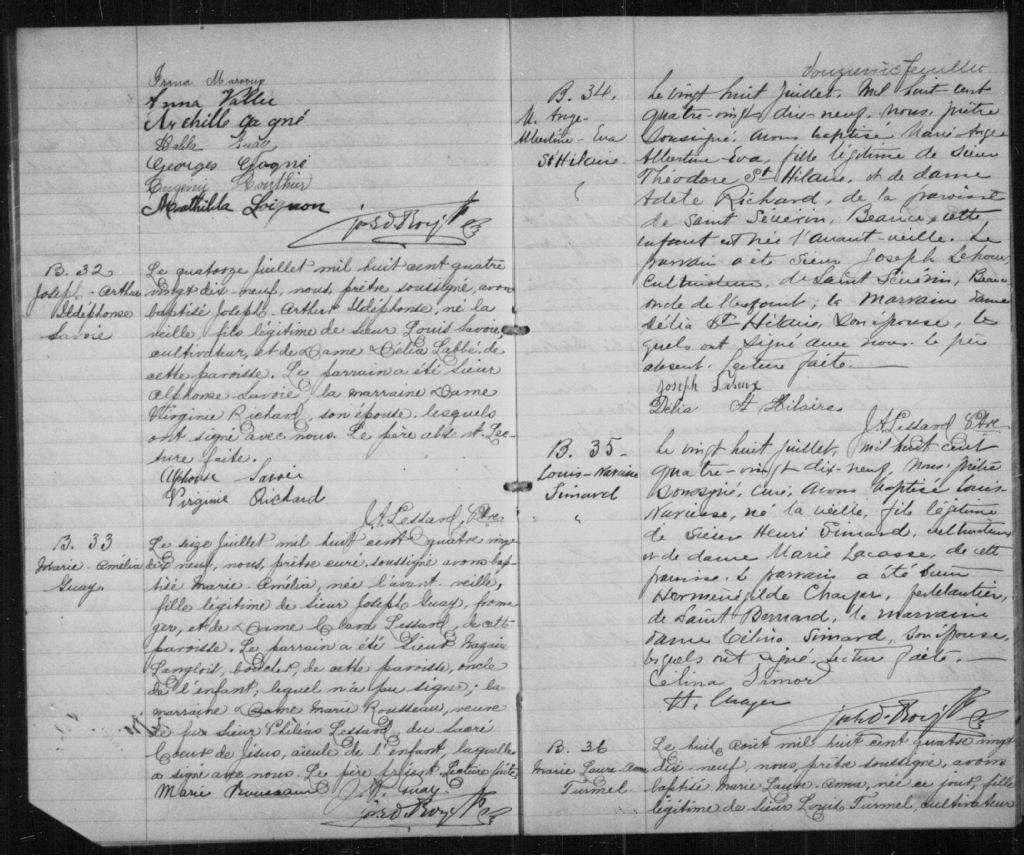 Irma Marcoux
Anna Vallee
Archille Gagné
Georges Gagné
Eugenie
Mathilda Loignon
Jos D Roy Ptre
B. 32
Joseph-Arthur
Ildéphonse
Savoie
Le quatorze juillet mil huit cent quatre
vingt dix-neuf, nous, prêtre soussigné, avons
baptisé Joseph-Arthur Ildéphonse, né la
veille, fils légitime de sieur Louis Savoie
cultivateur, et de Dame Délia Labbé de
cette paroisse. Le parrain a été Sieur
Alphonse Savoie, la marraine Dame
Virginie Richard, son épouse, lesquels
ont signé avec nous. Le père absent. Lec-
ture faite.
Alphonse Savoie
Virginie Richard
J.A. Lessard, Ptre
B. 33
Marie-Amélia
Guay
Le seize juillet mil huit cent quatre vingt
dix neuf, nous, prêtre curé, soussigné avons bap-
tisé Marie-Amélia, née l'avant veille,
fille légitime de sieur Joseph Guay, froma
ger, et de Dame Clara Lessard, de cette
paroisse. Le parrain a été Sieur Magloire
Langlois, de cette paroisse, oncle
de l'enfant, lequel n'a pu signer; la
marraine Dame Marie Rousseau, veuve
de feu Sieur Philéas Lessard, du Sacré
Coeur de Jésus, aieule de l'enfant, laquelle
a signé avec nous. Le père présent. Lecture faite.
Marie Rousseau J. A. Guay
Jos D Roy Ptre
douzième feuillet
B. 34.
M. Ange-
Albertine-Eva
St Hilaire
Le vingt huit juillet, mil huit cent
quatre-vingt dix-neuf, nous, prêtre
soussigné, avons baptisé Marie Ange
Albertine Eva, fille légitime de sieur
Théodore St Hilaire, et de dame
Adèle Richard, de la paroisse
de Saint Séverin, Beauce, cette
enfant est née l'avant-veille. Le
parrain a été Sieur Joseph
Cultivateur, de Saint Séverin, Beauce
oncle de l'enfant; la marraine dame
Délia St Hilaire, son épouse, les
quels ont signé avec nous. Le père
absent. Lecture faite.
Joseph
Delia St Hilaire
J.A. Lessard Ptre
B. 35
Louis-Narcisse
Simard
Le vingt huit juillet, mil huit cent
quatre-vingt dix-neuf, nous, prêtre
soussigné, curé, avons baptisé Louis
Narcisse, né la veille, fils légitime
de Sieur Henri Simard, cultivateur
et de dame Marie Lacasse, de cette
paroisse. Le parrain a été Sieur
Herménégilde ferblantier,
de Saint Bernard, la marraine
dame Célina Simard, son épouse,
lesquels ont signé. Lecture faite.
Célina Simard
H.
Jos D Roy Ptre
B. 36
Marie Laure-Anna
Turmel
Le huit août mil huit cent quatre vingt
dix-neuf nous, prêtre soussigné, avons
baptisé Marie Laure-Anna, née ce jour, fille
légitime de sieur Louis Turmel, cultivateur